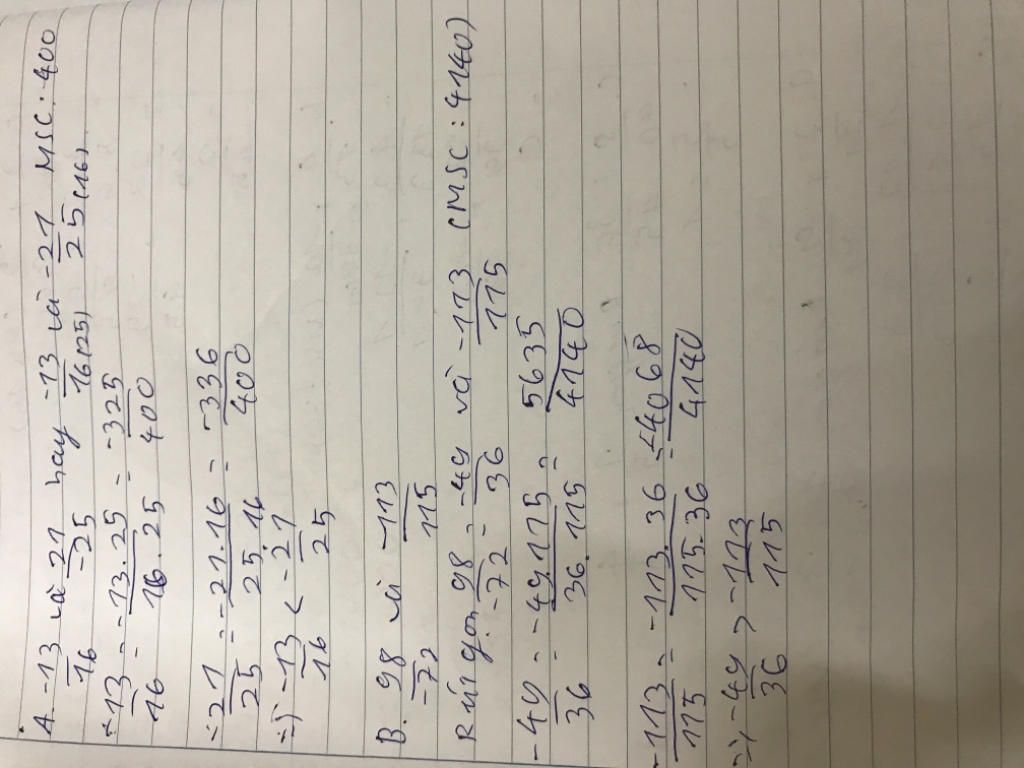 A. -13/16 và 21/-25 hay -13/16(25) và -21/25(16) MSC: 400
-13/16 = -13.25/16.25 = -325/400
-21/25 = -21.16/25.16 = -336/400
=> -13/16 < -21/25
B. 98/-72 và -113/115
Rút gọn 98/-72 = -49/36 và -113/115 (MSC: 4140)
-49/36 = -49.115/36.115 = 5635/4140
-113/115 = -113.36/115.36 = -4068/4140
=> -49/36 > -113/115